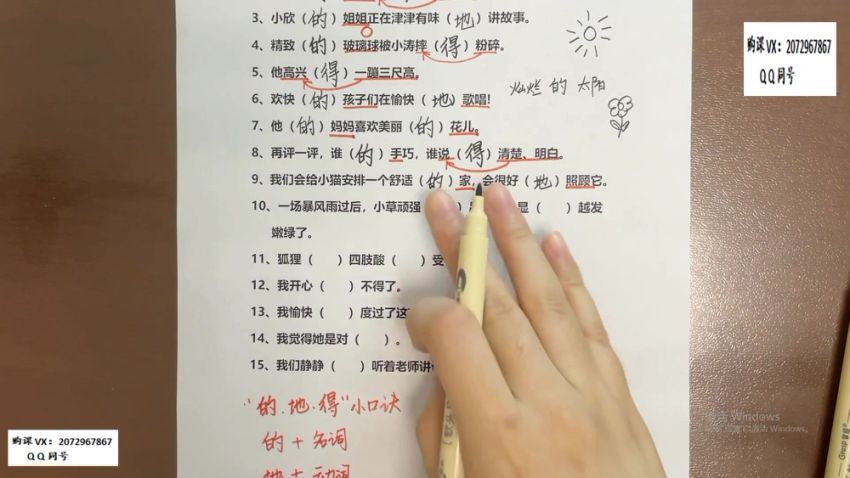 3、小欣（的）姐姐正在津津有味（地）讲故事。
4、精致（的）玻璃球被小涛摔（得）粉碎。
5、他高兴（得）一蹦三尺高。
6、欢快（的）孩子们在愉快（地）歌唱！
灿烂 的 太阳
7、他（的）妈妈喜欢美丽（的）花儿。
8、再评一评，谁（的）手巧，谁说（得）清楚、明白。
9、我们会给小猫安排一个舒适（的）家，会很好（地）照顾它。
10、一场暴风雨过后，小草顽强 显（ ）越发
嫩绿了。
11、狐狸（ ）四肢酸（ ）受
12、我开心（ ）不得了。
13、我愉快（ ）度过了这
14、我觉得她是对（ ）。
15、我们静静（ ）听着老师讲
"的、地、得"小口诀
的 + 名词
地 + 动词
购课VX：2072967867
QQ同号
购课VX：2072967867
QQ同号
Windows